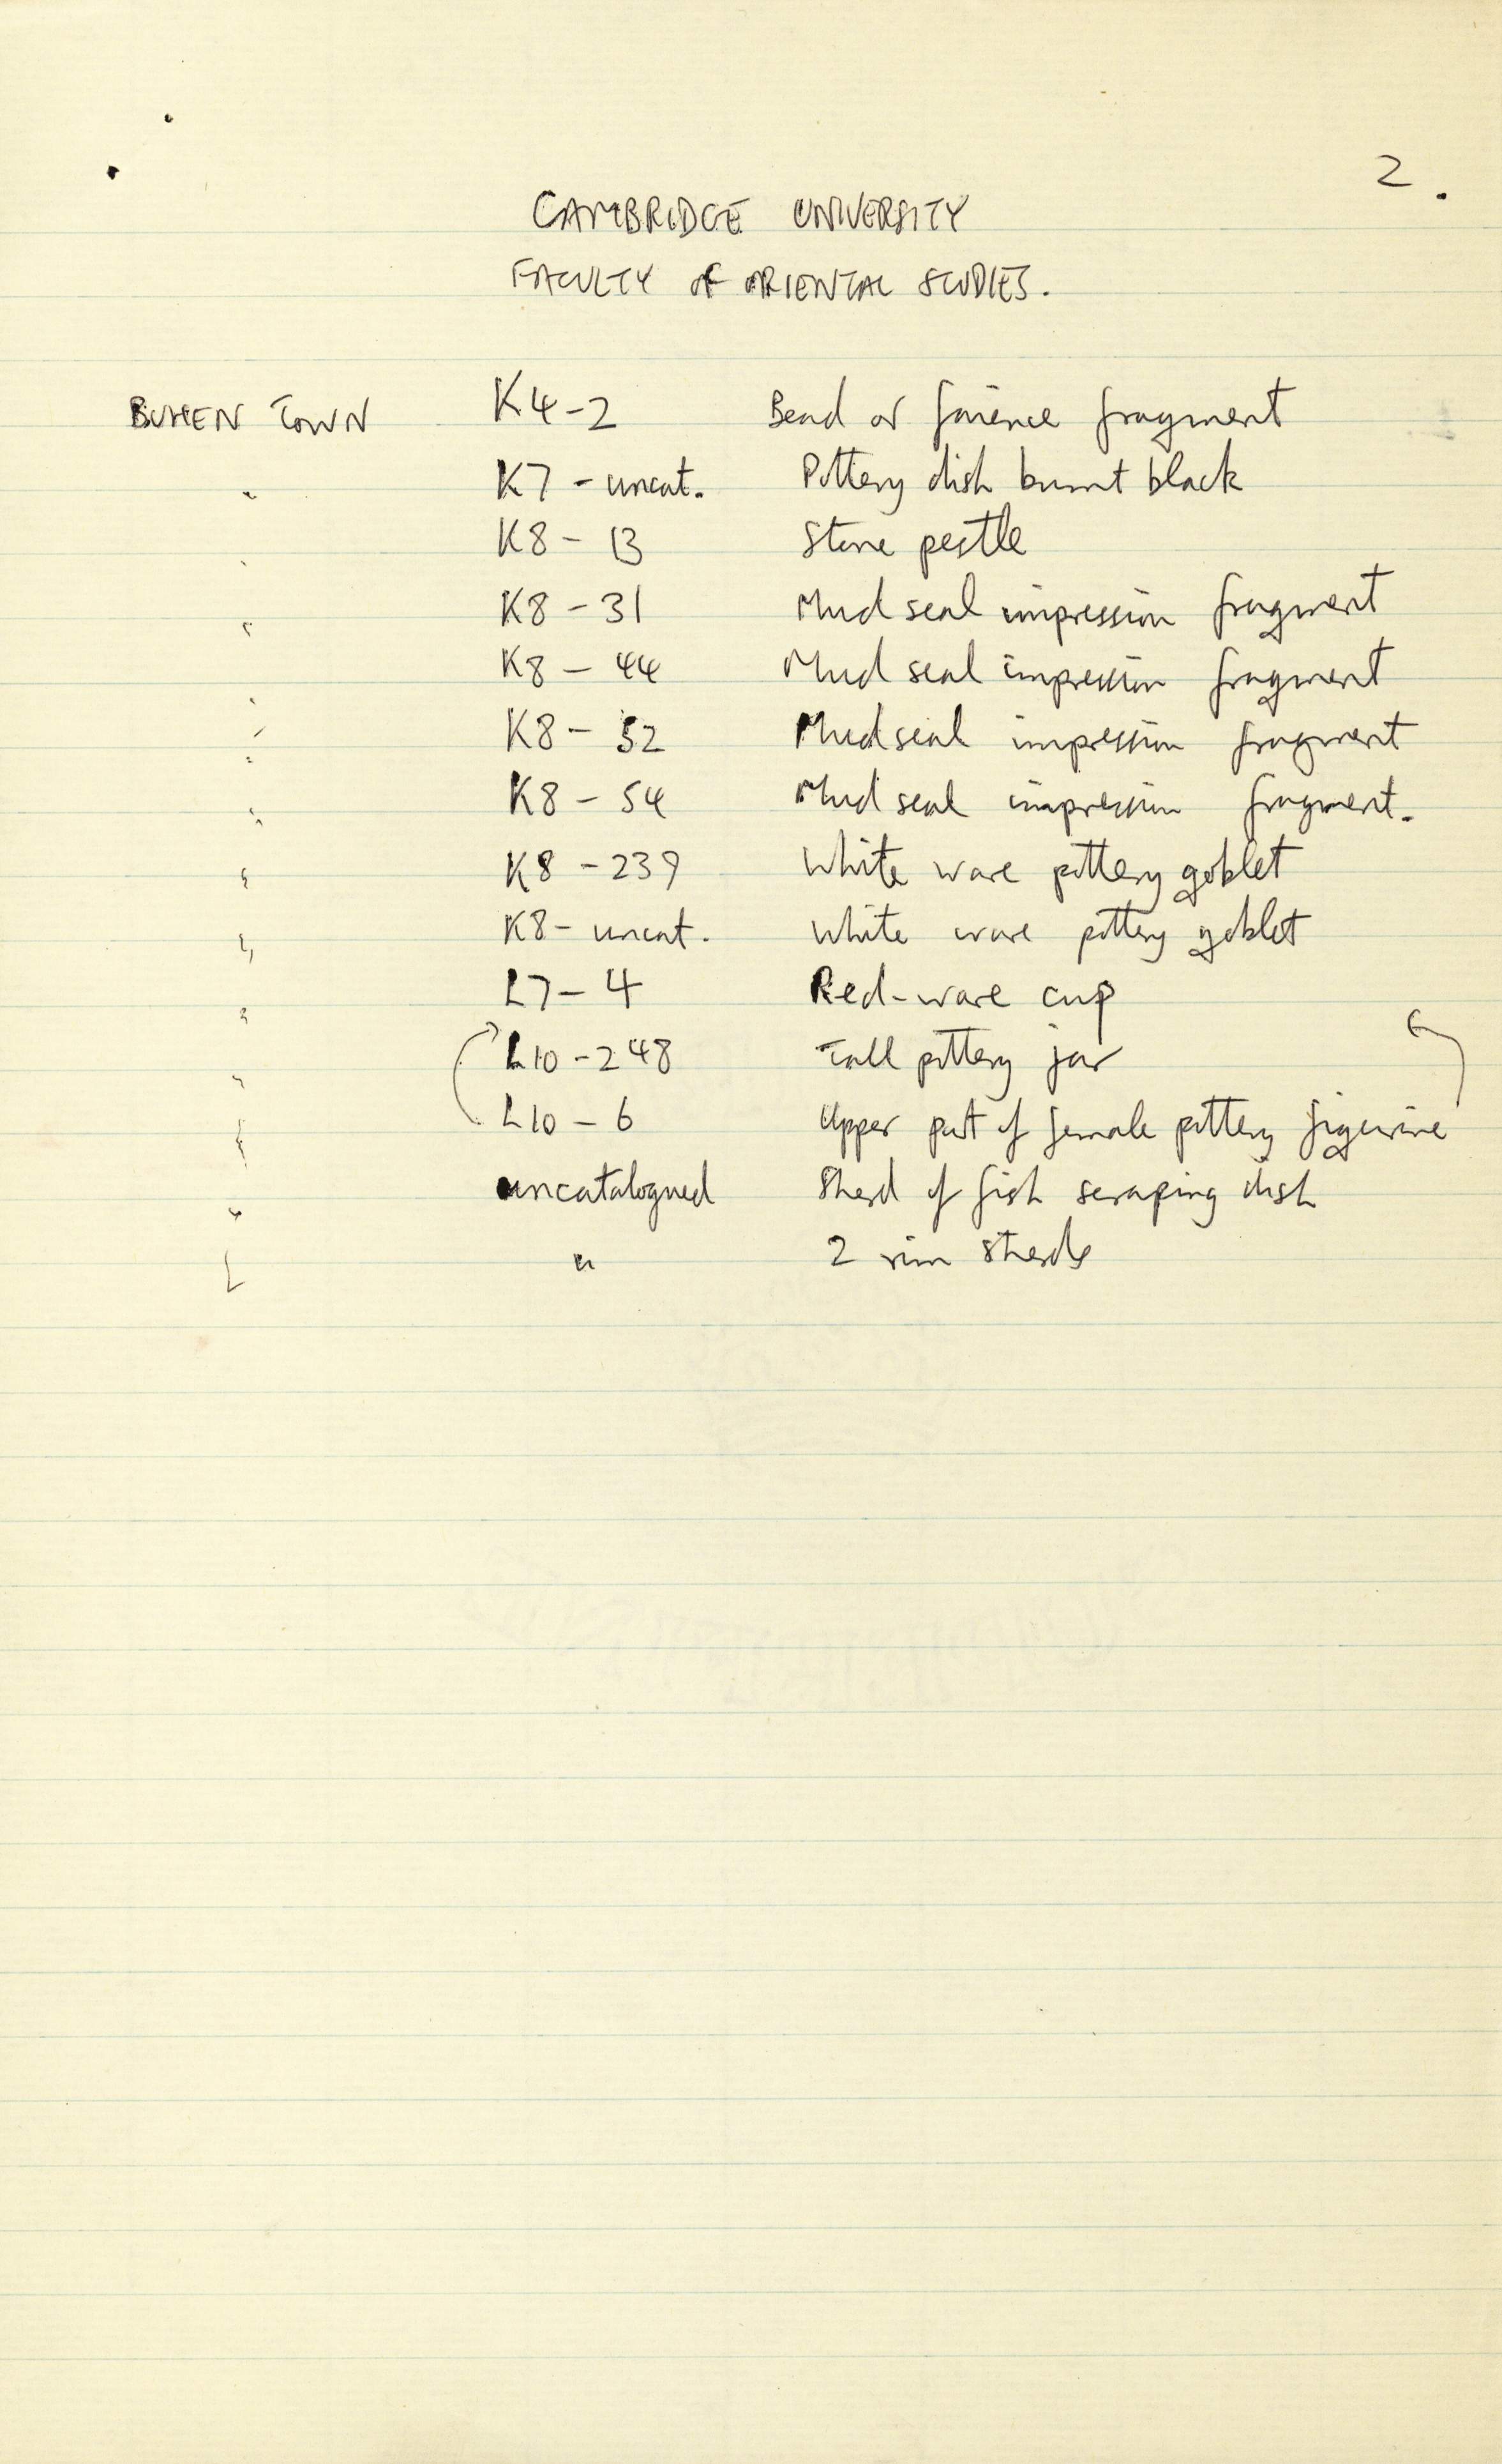 2.
CAMBRIDGE UNIVERSITY
FACULTY OF ORIENTAL STUDIES.
BUHEN TOWN K4-2 Bead or faience fragment
" K7 - uncat. Pottery dish burnt black
" K8 - 13 Stone pestle
" K8 - 31 Mud seal impression fragment
" K8 - 44 Mud seal impression fragment
" K8 - 52 Mud seal impression fragment
" K8 - 54 Mud seal impression fragment.
" K8 - 239 White ware pottery goblet
" K8 - uncat. White ware pottery goblet
" L7 - 4 Red-ware cup
" L10 - 248 Tall pottery jar
" L10 - 6 Upper part of female pottery figurine
" uncatalogued Sherd of fish scraping dish
" " 2 rim sherds